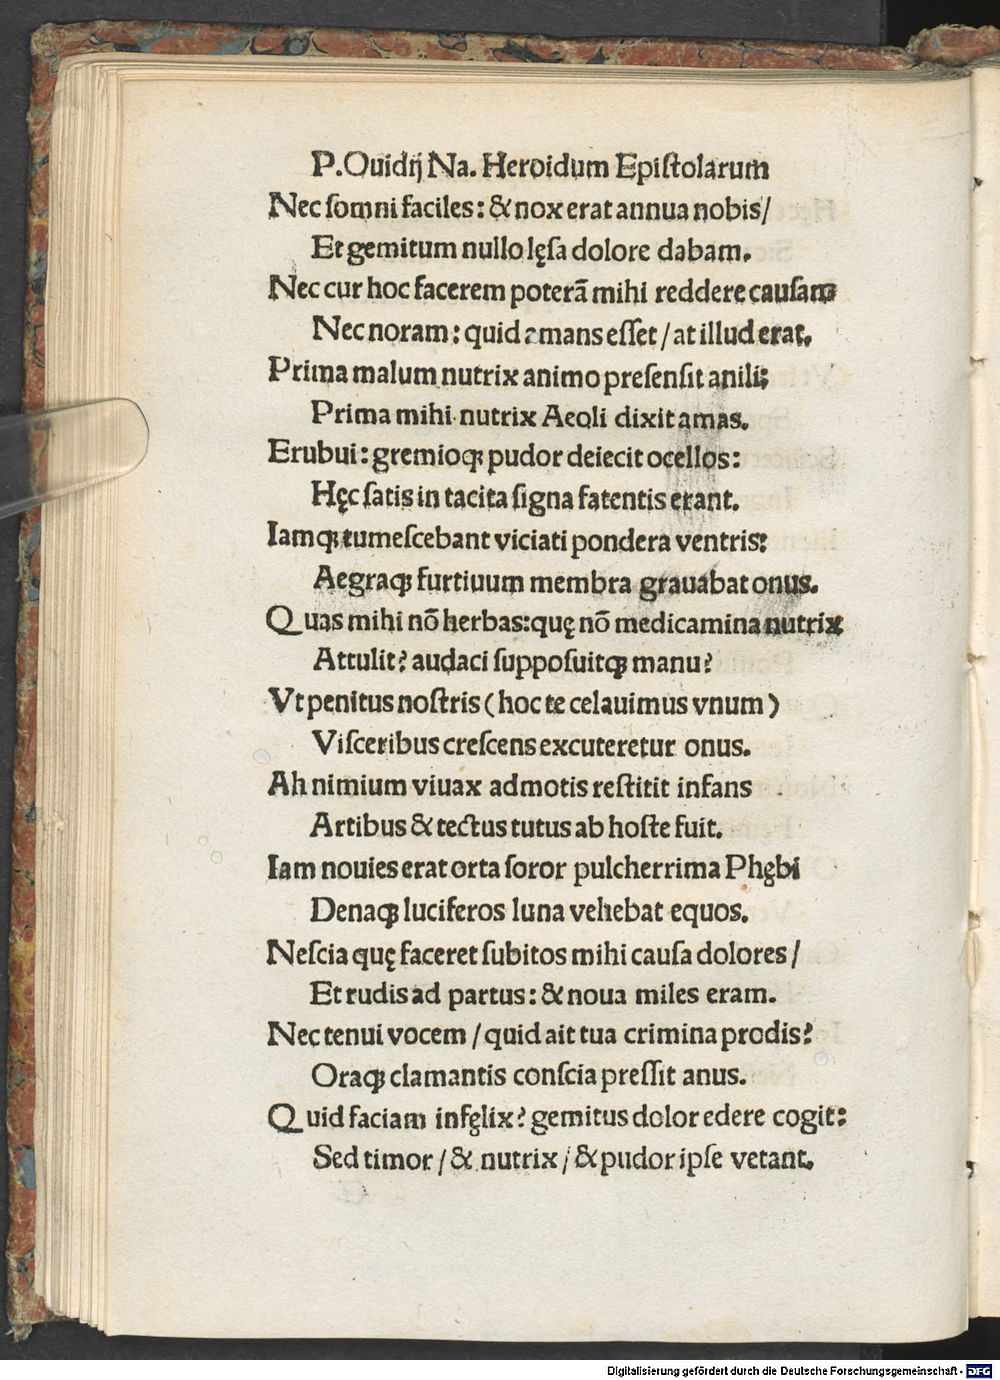 P.Ouidij Na. Heroidum Epiſtolarum
Nec ſomni faciles: & nox erat annua nobis/
Et gemitum nullo lęſa dolore dabam.
Nec cur hoc facerem poterā mihi reddere cauſam
Nec noram: quid amans eſſet / at illud erat.
Prima malum nutrix animo preſenſit anili:
Prima mihi nutrix Aeoli dixit amas.
Erubui: gremioqꝫ pudor deiecit ocellos:
Hęc ſatis in tacita ſigna fatentis erant.
Iamqꝫ tumeſcebant viciati pondera ventris:
Aegraqꝫ furtiuum membra grauabat onus.
Quas mihi nō herbas: quę nō medicamina nutrix
Attulit? audaci ſuppoſuitqꝫ manu?
Vt penitus noſtris (hoc te celauimus vnum)
Viſceribus creſcens excuteretur onus.
Ah nimium viuax admotis reſtitit infans
Artibus & tectus tutus ab hoſte fuit.
Iam nouies erat orta ſoror pulcherrima Phębi
Denaqꝫ luciferos luna vehebat equos.
Neſcia quę faceret ſubitos mihi cauſa dolores /
Et rudis ad partus: & noua miles eram.
Nec tenui vocem / quid ait tua crimina prodis?
Oraqꝫ clamantis conſcia preſſit anus.
Quid faciam infęlix? gemitus dolor edere cogit:
Sed timor / & nutrix / & pudor ipſe vetant.
Digitalisierung gefördert durch die Deutsche Forschungsgemeinschaft - DFG